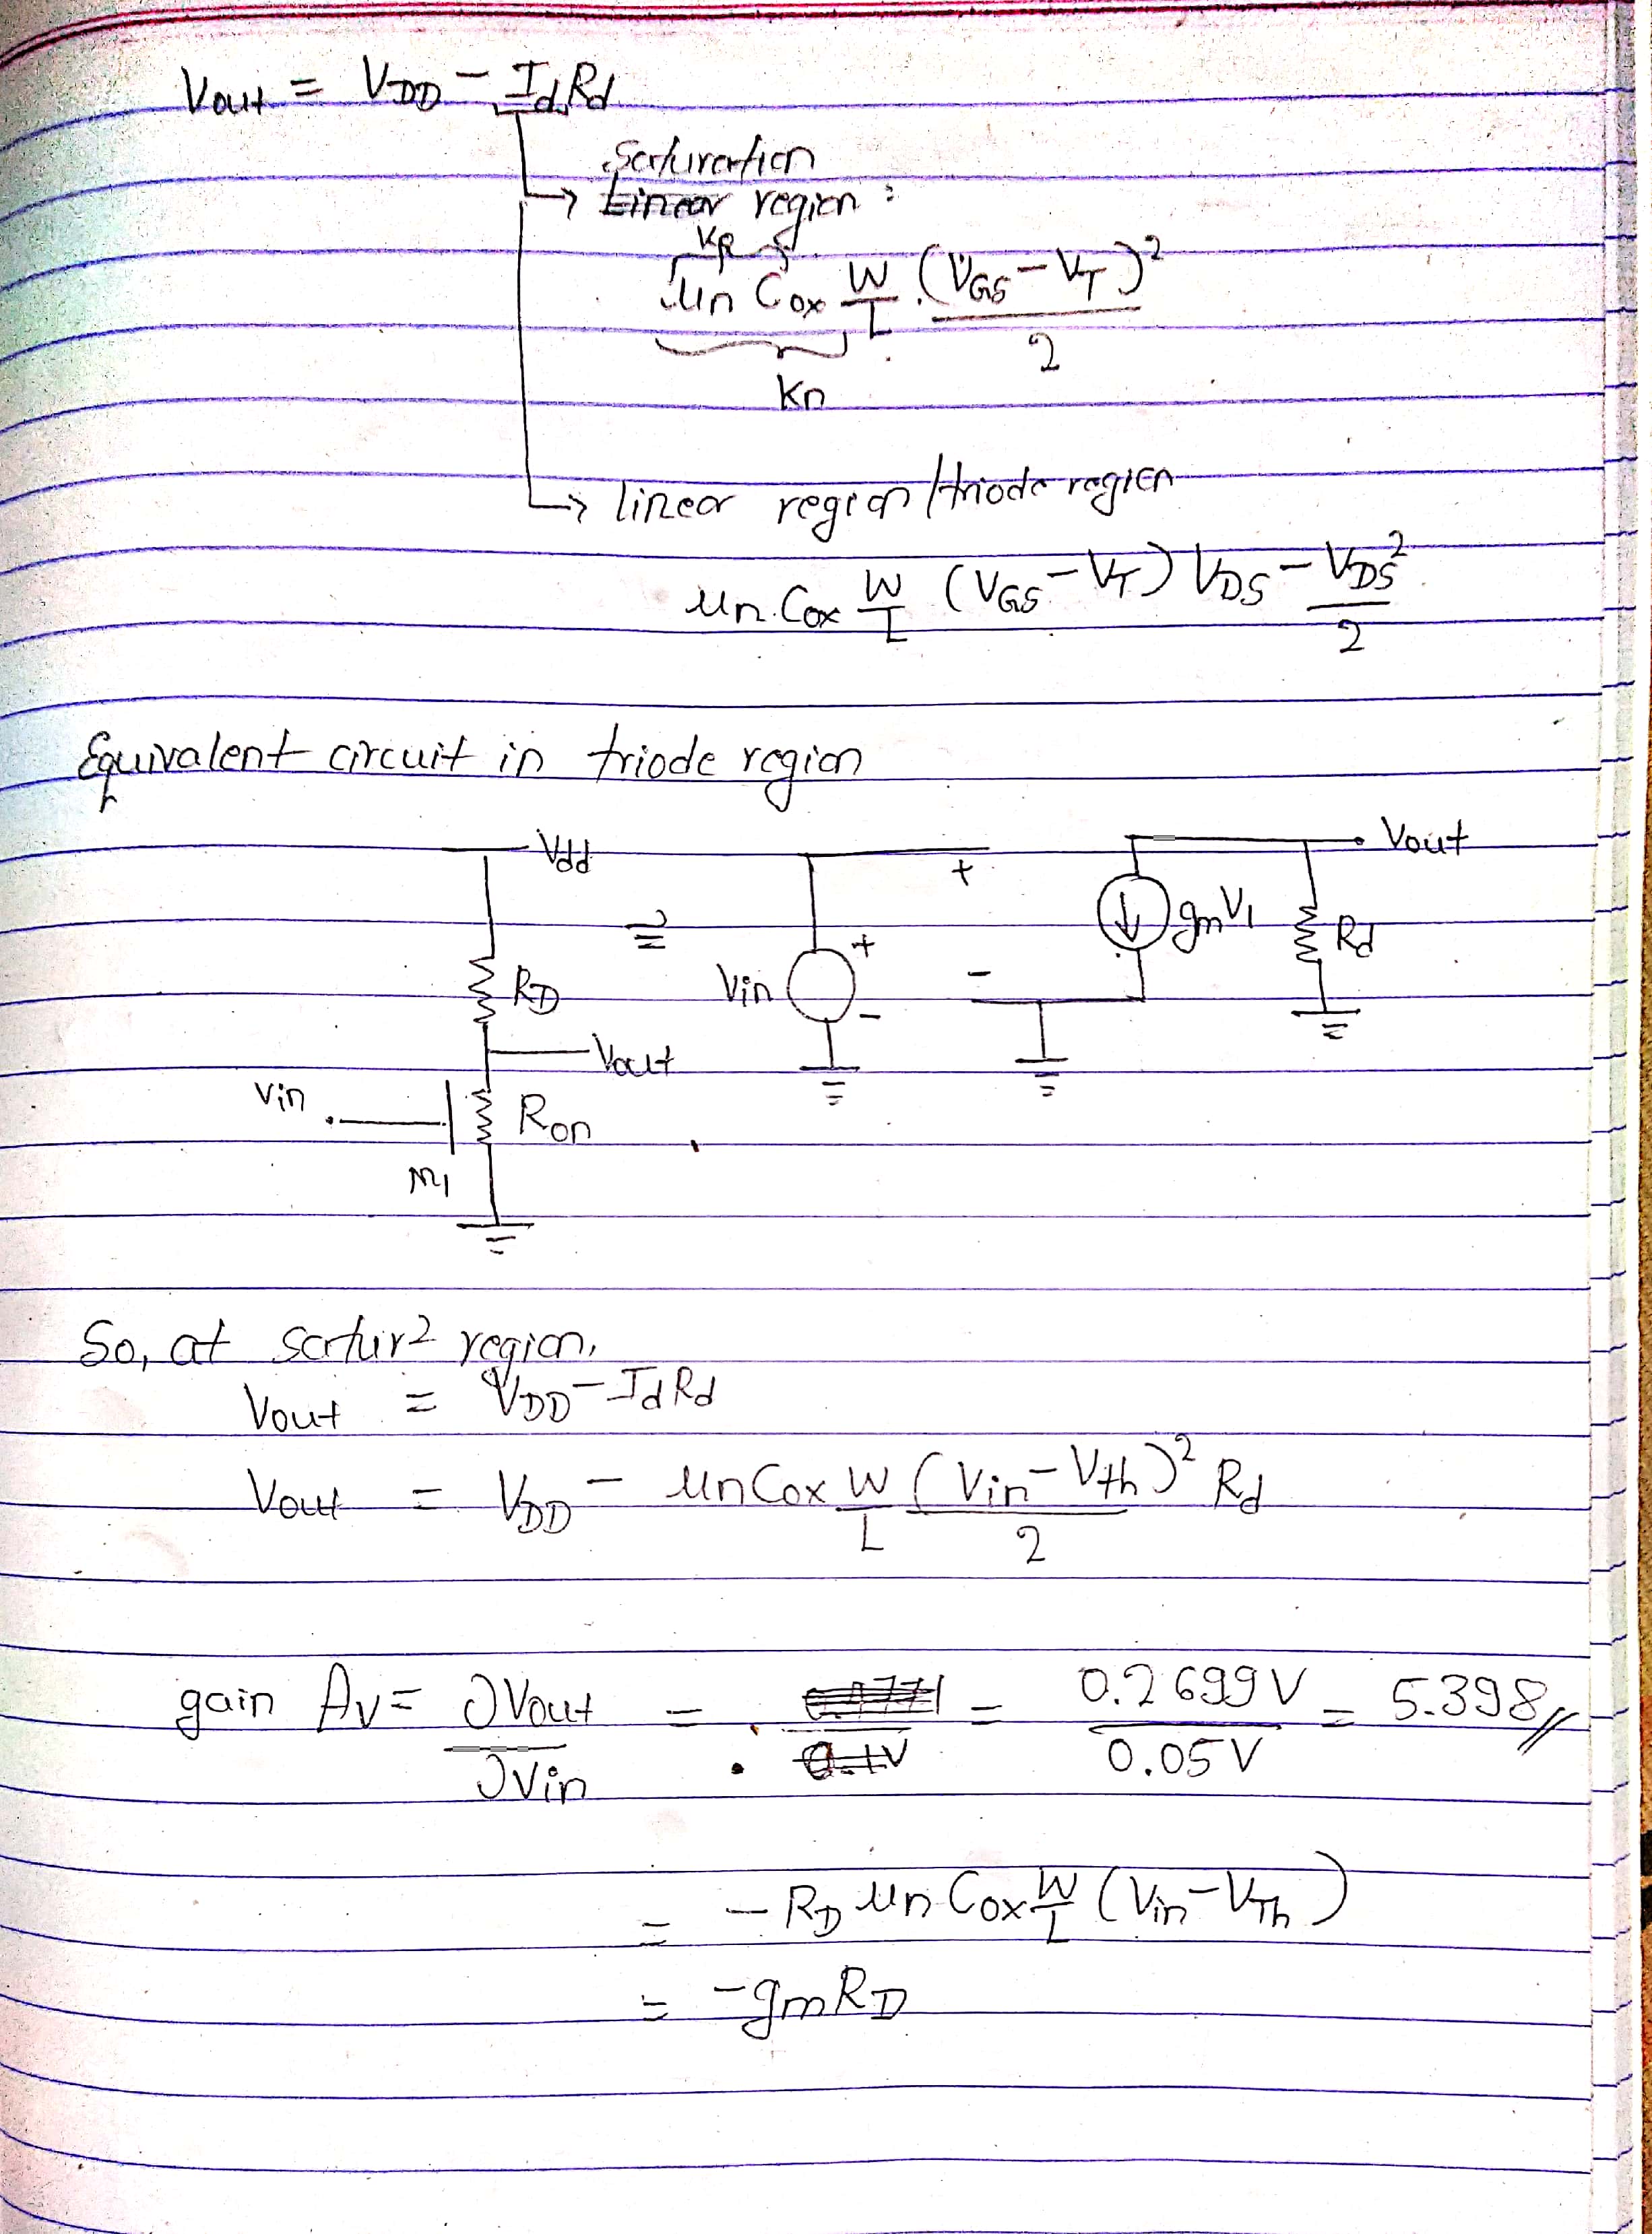 Vout = VDD - IdRd
Saturation
→ Linear region :
KP
μn Cox W/L . (VGS - VT)²/2
Kn
→ linear region / triode region
μn. Cox W/L (VGS - VT) VDS - VDS²/2
Equivalent circuit in triode region
Vdd
RD
Vout
Vin
Ron
M1
=
Vin
+
-
+
-
gmV1
Vout
Rd
So, at satur² region,
Vout = VDD - IdRd
Vout = VDD - μnCox W/L (Vin - Vth)²/2 Rd
gain Av = ∂Vout/∂Vin = = 0.2699V/0.05V = 5.398//
= - RD μn Cox W/L (Vin - VTh)
= -gmRD